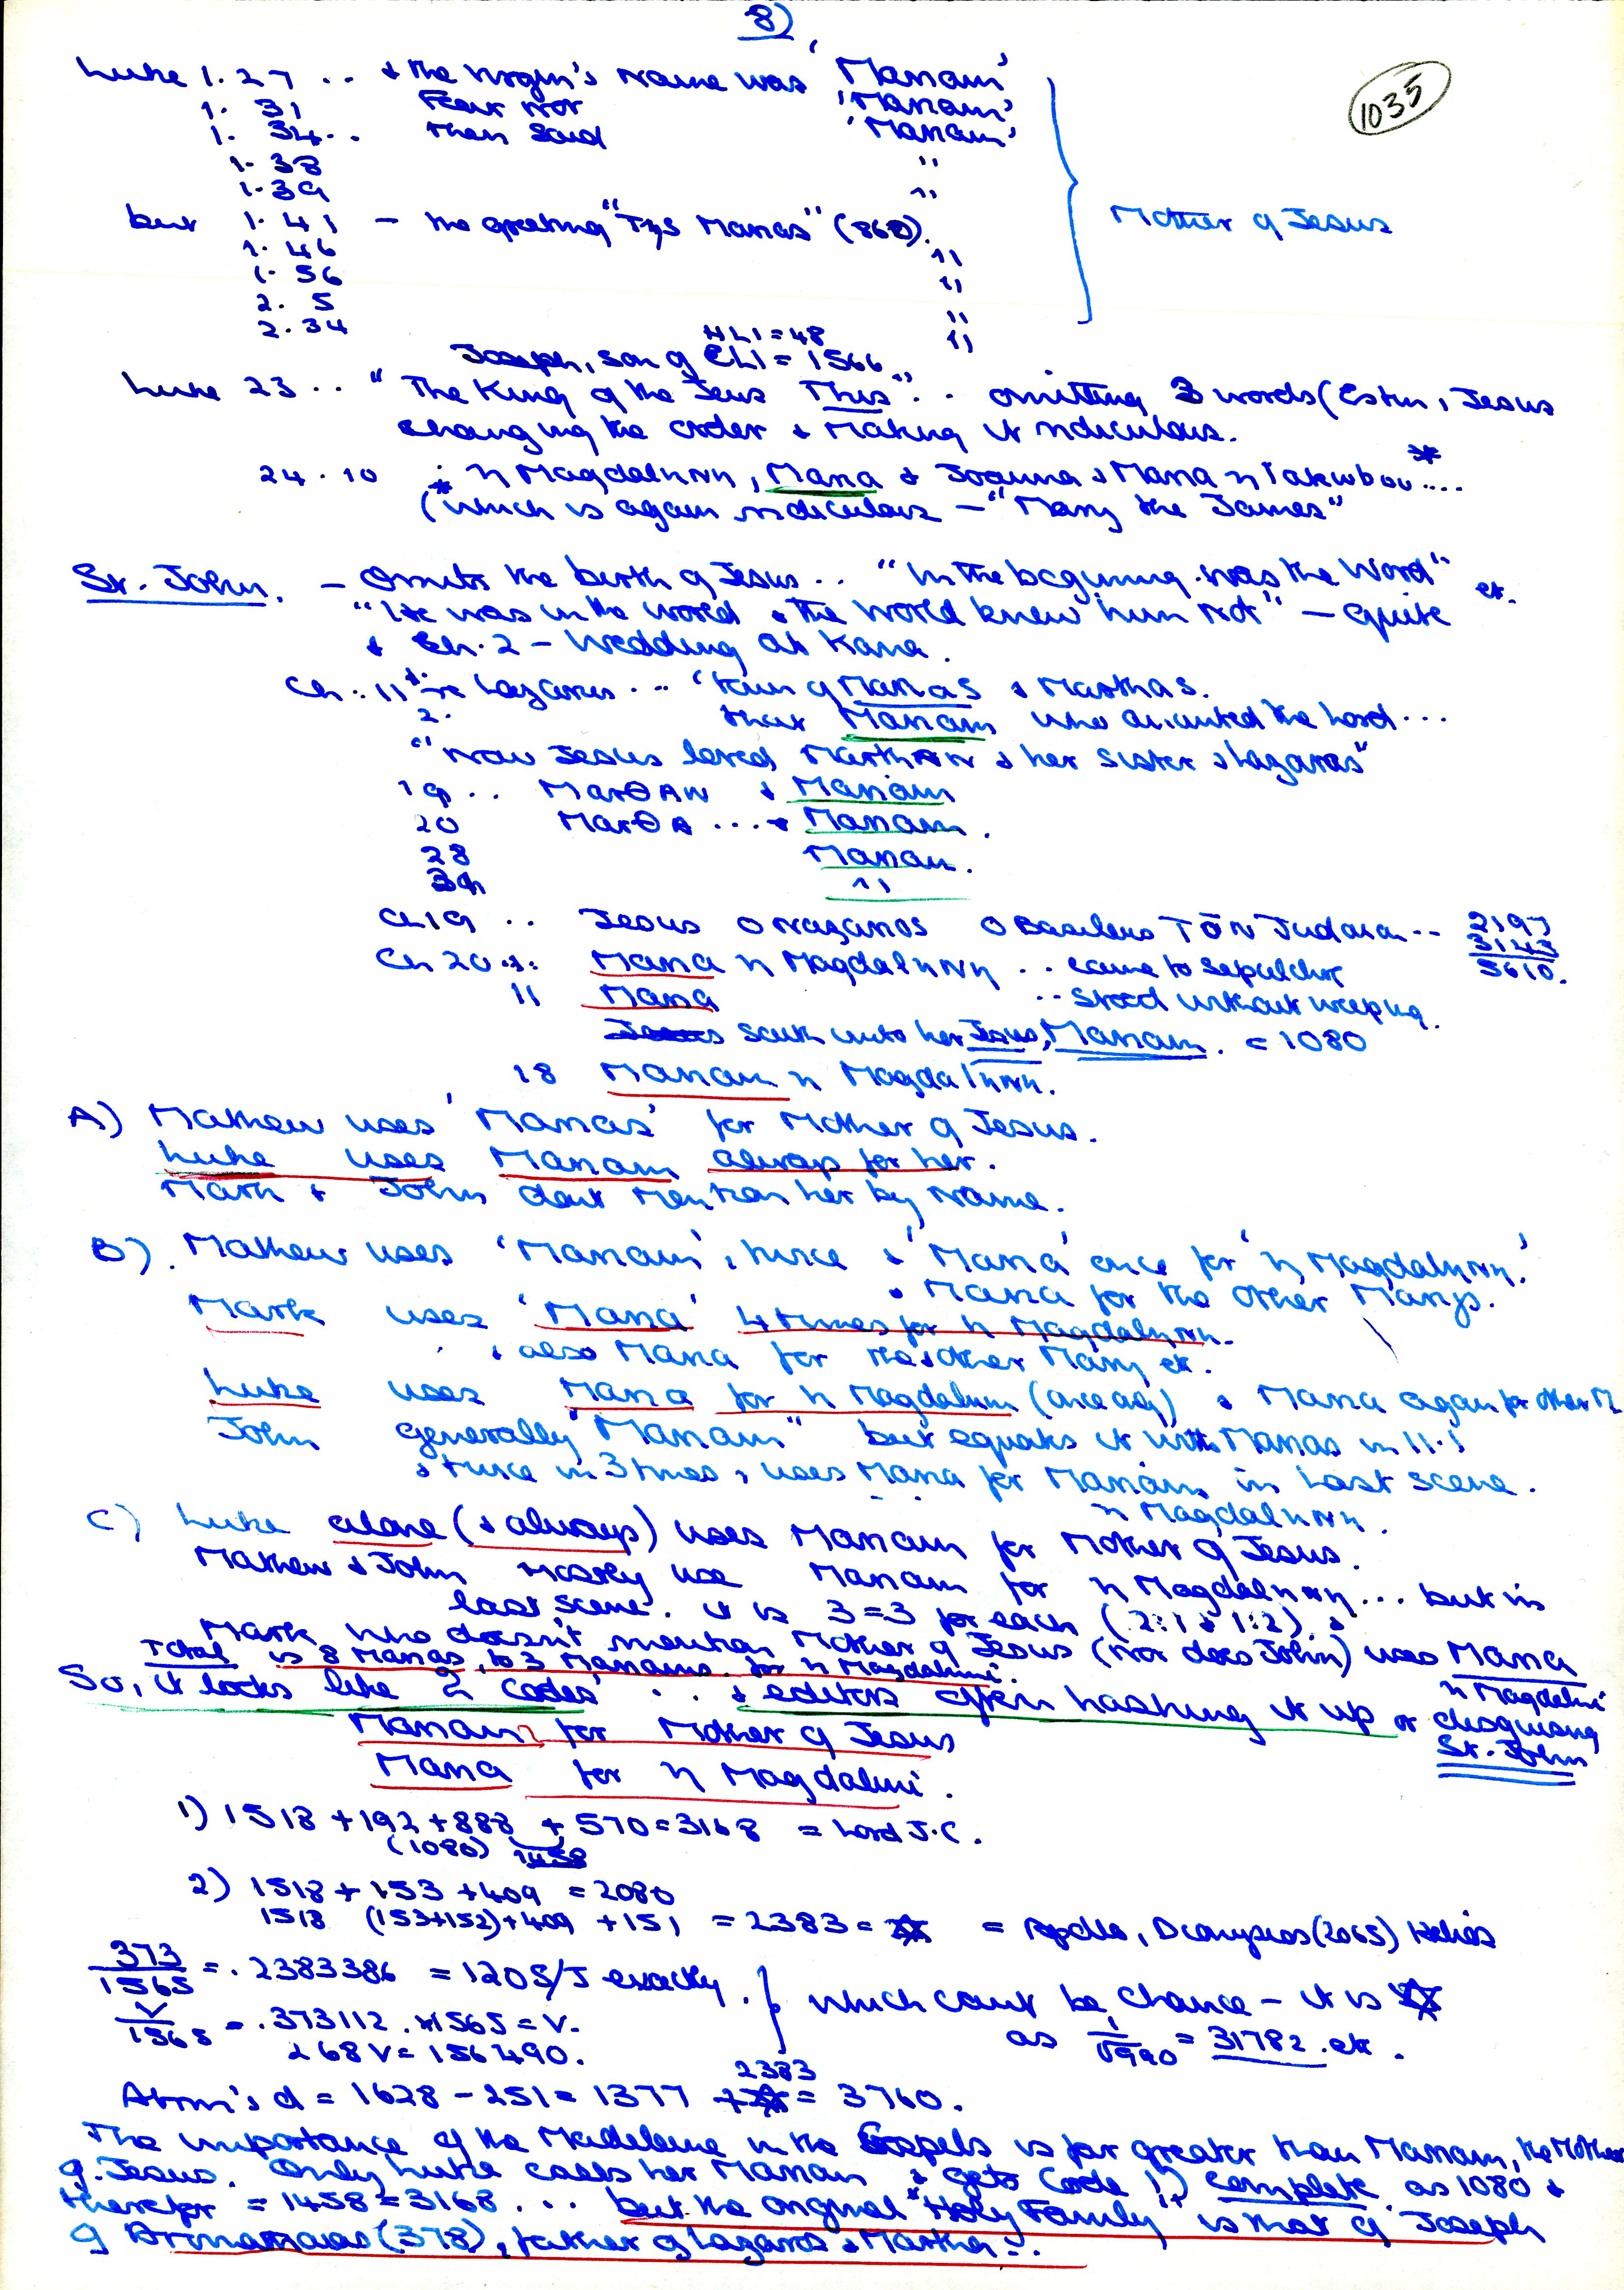 8)
1035
Luke 1.27 .. & the Virgin's name was 'Mariam'
1. 31 Fear not 'Mariam'
1. 34.. then said 'Mariam'
1. 38 "
1. 39 "
but 1. 41 - the greeting "Tηs Marias" (860).
1. 46 "
1. 56 "
2. 5 "
2. 34 "
Mother of Jesus
HLI = 48
Joseph, son of ELI = 1566
Luke 23 .. "The King of the Jews This" .. omitting 3 words (Estin, Jesus
changing the order & making it ridiculous.
24.10 : η Magdalηνη, Maria & Joanna & Maria η Iakwbou *....
* (which is again ridiculous - "Mary the James"
St. John. - Omits the birth of Jesus .. "In the beginning was the Word" et.
"He was in the world & the world knew him not" - quite
& Ch. 2 - Wedding at Kana.
Ch. 11 .. re Lazarus ... 'town of Marias & Marthas.
2. that Mariam who anointed the Lord ...
"Now Jesus loved Marthan & her sister & Lazarus"
19 .. MarθAN & Mariam
20 MarθA ... & Mariam.
28 Mariam.
"
Ch 19 .. Jesus O Nazarios O Basileus TōN Judaian .. 2197
3143
5610.
Ch 20.1: Maria η Magdalηνη .. came to sepulchre
11 Maria .. stood without weeping.
saith unto her Jesus, Mariam. = 1080
18 Mariam η Magdalηνη.
A) Mathew uses 'Marias' for Mother of Jesus.
Luke uses Mariam always for her.
Mark & John dont mention her by name.
B). Mathew uses 'Mariam', twice & 'Maria' once for 'η Magdalηνη.'
& Maria for the other Marys.
Mark uses 'Maria' 4 times for η Magdalηνη.
& also Maria for the other Mary et.
Luke uses Maria for η Magdalηνη (once only) & Maria again for other M
John generally "Mariam" but equates it with Marias in 11.1
& twice in 3 times, uses Maria for Mariam in last scene.
η Magdalηνη.
C) Luke alone (& always) uses Mariam for Mother of Jesus.
Mathew & John mostly use Mariam for η Magdalηνη... but in
last scene. it is 3=3 for each (2:1 & 1:2) &
Mark who doesn't mention Mother of Jesus (nor does John) uses Maria
η Magdalini
Total is 8 Marias, to 3 Mariams. for η Magdalini.
So, it looks like 2 codes ... & editors often hashing it up or disguising
St. John
Mariam for Mother of Jesus
Maria for η Magdalini.
1) 1518 + 192 + 888 + 570 = 3168 = Lord J.C.
(1080) 1458
2) 1518 + 153 + 409 = 2080
1518 (153+152) + 409 + 151 = 2383 = ☆ = Apollo, Dionysios (2065) Helios
373/1565 = .2383386 = 1205/J exactly.
V/1565 = .373112. 1565 = V.
268V = 156490.
which cant be chance - it is ☆
as 1/√990 = 31782. et.
Atom's d = 1628 - 251 = 1377 + 2383 = 3760.
The importance of the Madeleine in the Gospels is far greater than Mariam, the Mother
of Jesus. Only Luke calls her Mariam & gets Code 1) complete as 1080 &
therefor = 1458 = 3168 ... but the original "Holy Family" is that of Joseph
of Arimamaias (378), father of Lazarus & Martha?.